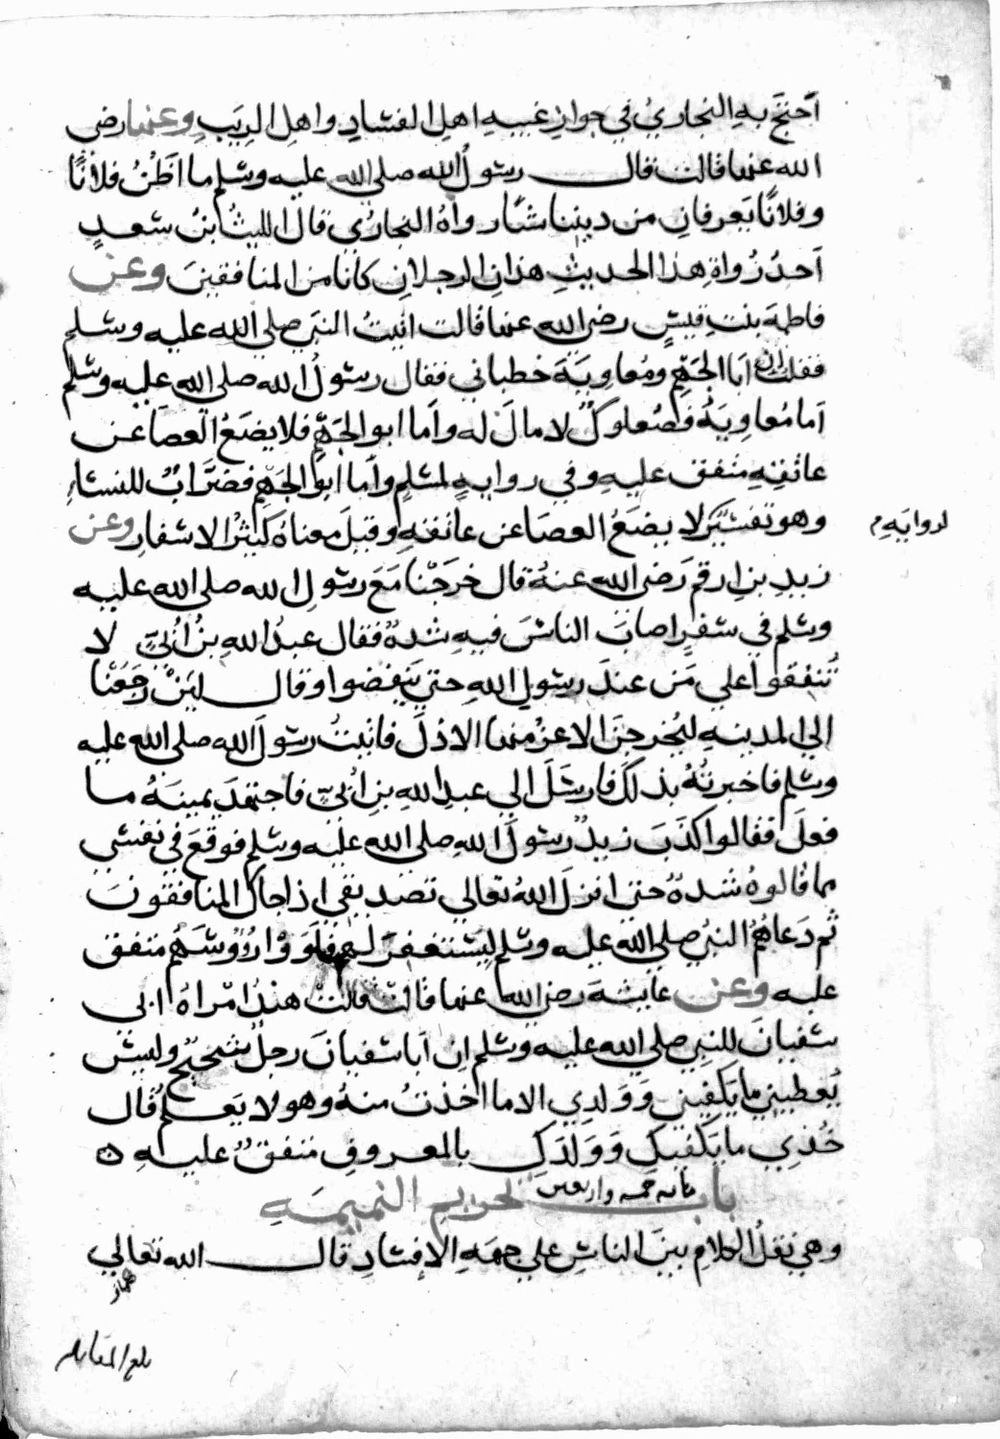 احتج به البخاري في جواز غيبه اهل الفساد واهل الريب وعنها رضي
الله عنها قالت قال رسول الله صلى الله عليه وسلم ما اظن فلانا
وفلانا يعرفان من ديننا شيا رواه البخاري قال الليث بن سعد
احد رواة هذا الحديث هذان الرجلان كانا من المنافقين وعن
فاطمة بنت قيس رضي الله عنها قالت اتيت النبي صلى الله عليه وسلم
فقلت ان ابا الجهم ومعاوية خطباني فقال رسول الله صلى الله عليه وسلم
اما معاوية فصعلوك لا مال له واما ابو الجهم فلا يضع العصا عن
عاتقه متفق عليه وفي رواية لمسلم واما ابو الجهم فضراب للنساء
وهو تفسير لا يضع العصا عن عاتقه وقيل معناه كثير الاسفار وعن
لروايه م
زيد بن ارقم رضي الله عنه قال خرجنا مع رسول الله صلى الله عليه
وسلم في سفر اصاب الناس فيه شدة فقال عبد الله بن ابي لا
تنفقوا على من عند رسول الله حتي ينفضوا وقال لين رجعنا
الي المدينه ليخرجن الاعز منها الاذل فاتيت رسول الله صلى الله عليه
وسلم فاخبرته بذلك فارسل الي عبد الله بن ابي فاجتهد يمينه ما
فعل فقالوا كذب زيد رسول الله صلى الله عليه وسلم فوقع في نفسي
مما قالوه شدة حتى انزل الله تعالي تصديقي اذا جاك المنافقون
ثم دعاهم النبي صلى الله عليه وسلم ليستغفر لهم فلووا رؤوسهم متفق
عليه وعن عايشة رضي الله عنها قالت قالت هند امراة ابي
سفيان للنبي صلى الله عليه وسلم ان ابا سفيان رجل شحيح وليس
يعطيني ما يكفيني وولدي الا ما اخذت منه وهو لا يعلم قال
خذي ما يكفيك وولدك بالمعروف متفق عليه ه
باب تحريم النميمه
وهي نقل الكلام بين الناس علي جهه الافساد قال الله تعالي
هماز
بلغ المقابله